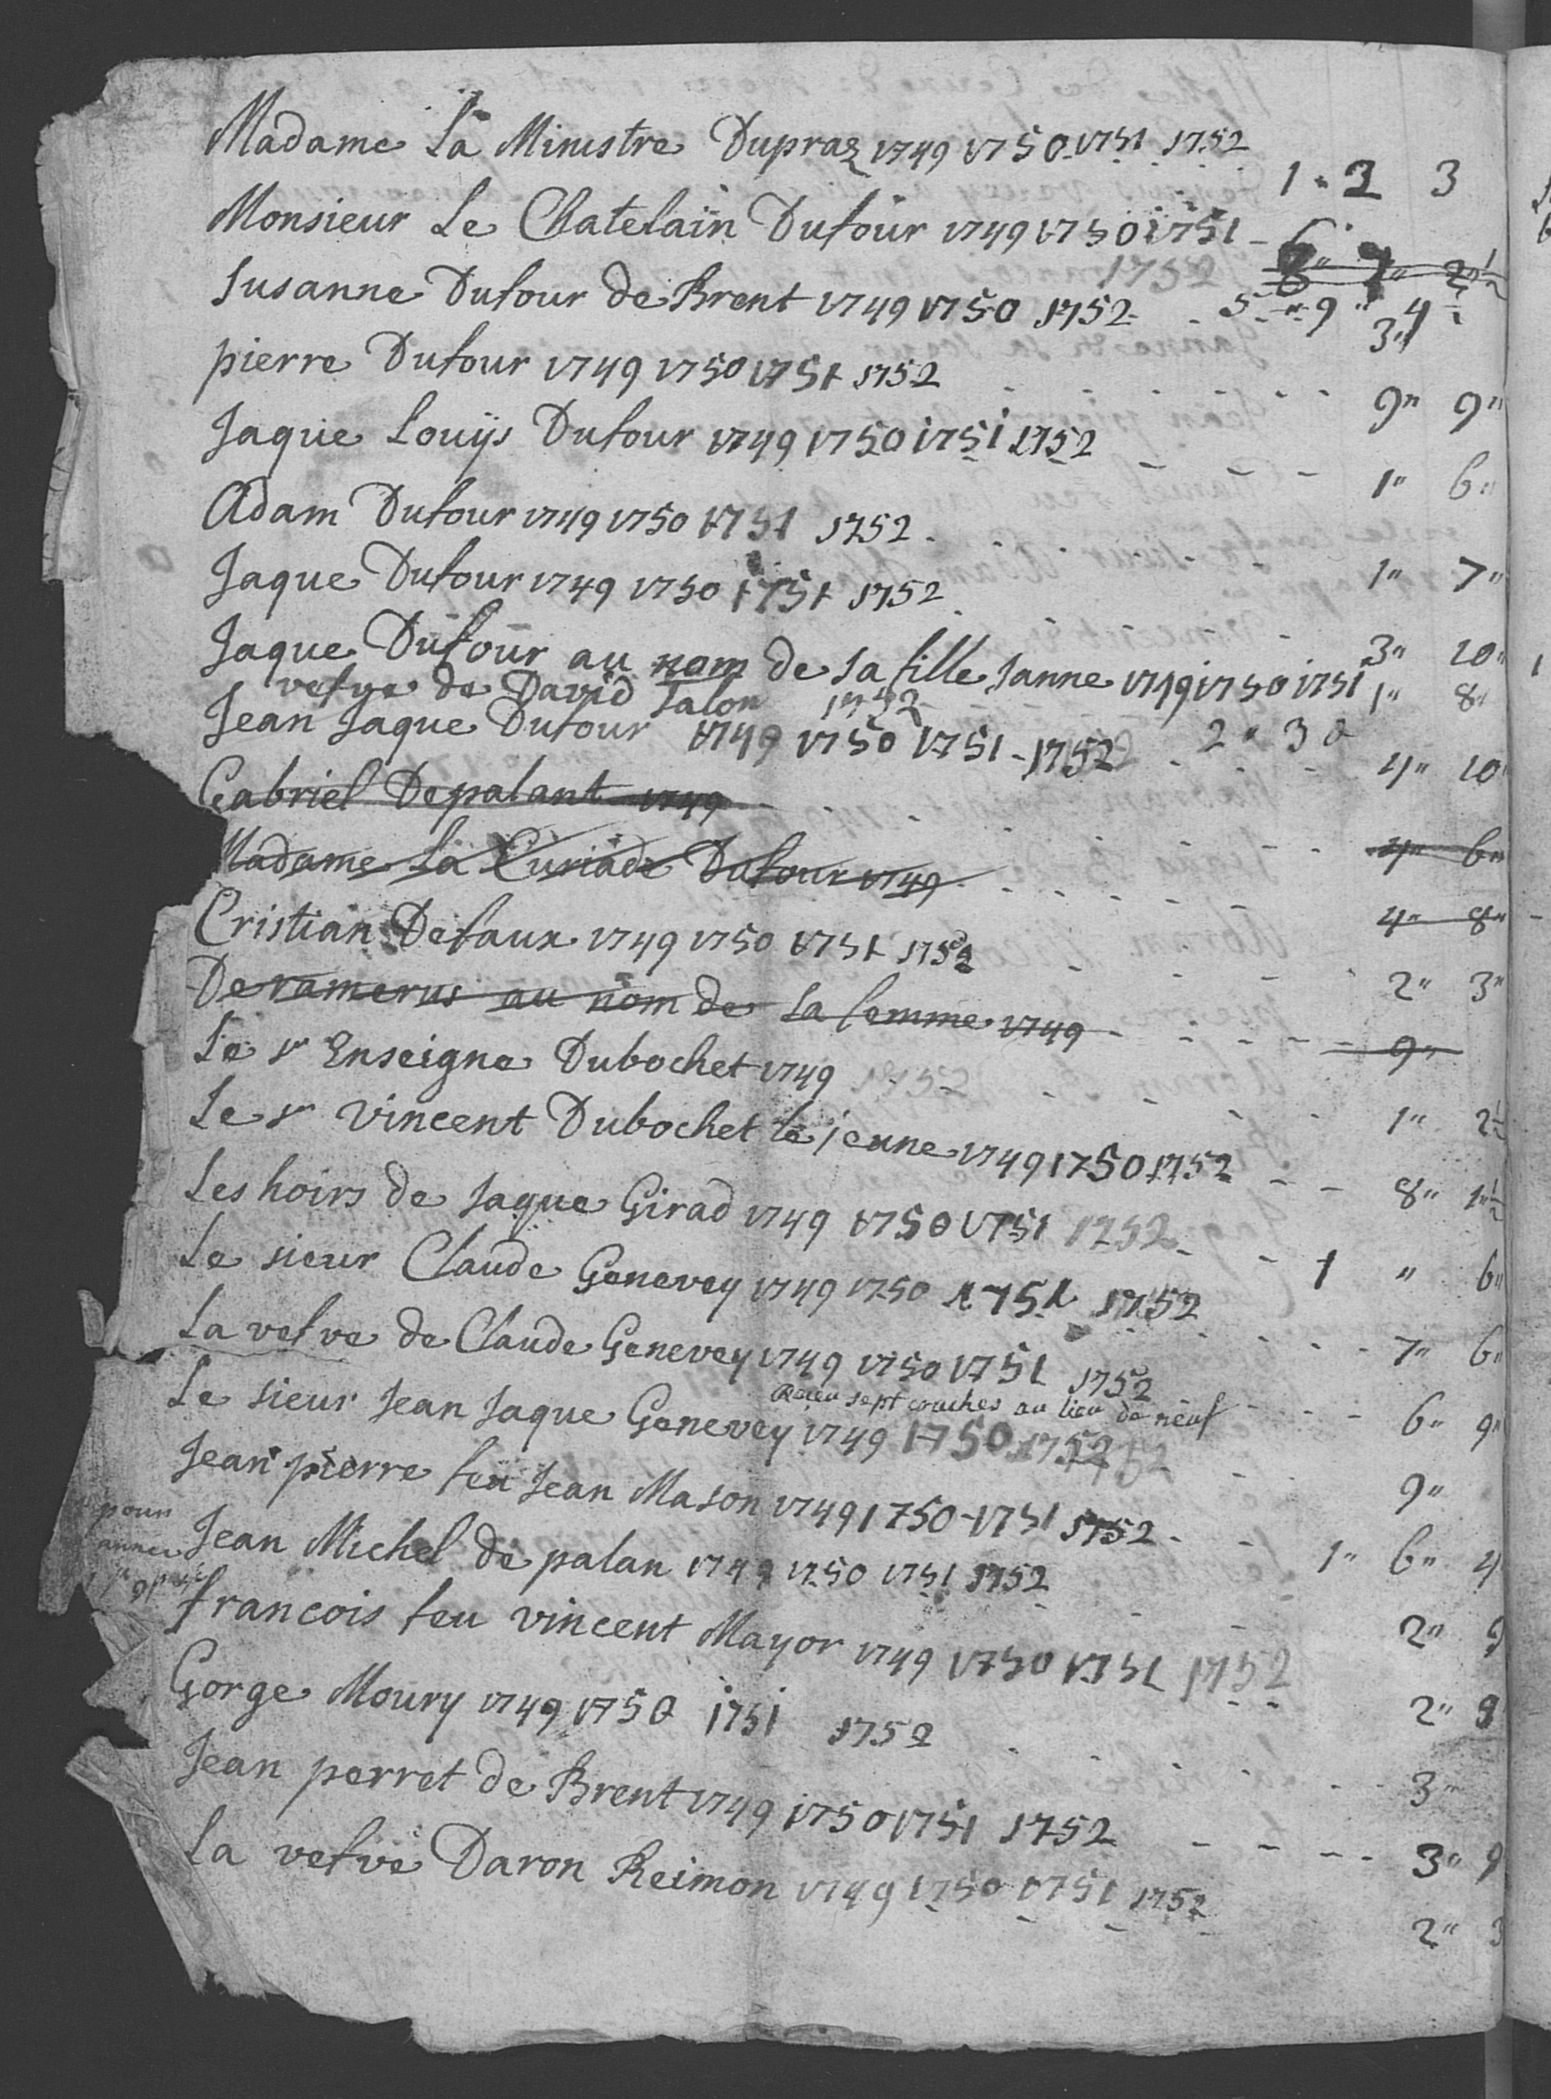 Madame La Ministre Dupraz 1749 1750 1751 1752 1 " 2 3
Monsieur Le Chatelain Dufour 1749 1750 1751 - 6
1752 7" 2" ½
Susanne Dufour de Brent 1749 1750 1752 - - 5 " 9 " 4 ½
3"
pierre Dufour 1749 1750 1751 1752 9" 9"
Jaque Louijs Dufour 1749 1750 1751 1752 1" 6"
Adam Dufour 1749 1750 1751 1752 1" 7"
Jaque Dufour 1749 1750 1751 1752 3" 10"
Jaque Dufour au nom de sa fille Janne 1749 1750 1751 1" 8"
vefve de David Talon 1752
Jean Jaque Dufour 1749 1750 1751 - 1752 2 " 3 4" 10"
Gabriel Depalant 1749 4" 6"
Madame La Curiade Dufour 1749 4" 8"
Cristian Defaux 1749 1750 1751 1752 2" 3"
Deramerus au nom de sa femme 1749 9"
Le sr Enseigne Dubochet 1749 1752 1" 2 ½
Le sr vincent Dubochet le jeune 1749 1750 1752 8" 1" ½
Les hoirs de Jaque Girad 1749 1750 1751 1752 1 " 6"
Le sieur Claude Genevey 1749 1750 1751 1752 7" 6"
La vefve de Claude Genevey 1749 1750 1751 1752 6" 9"
sept cruches au lieu de neuf
Le sieur Jean Jaque Genevey 1749 1750 1752 9"
Jean pierre feu Jean Mason 1749 1750 - 1751 1752 1" 6" 4
pour
Jean Michel de palan 1749 1750 1751 1752 2" 9
francois feu vincent Mayor 1749 1750 1751 1752 2" 9
Gorge Moury 1749 1750 1751 1752 3"
Jean perret de Brent 1749 1750 1751 1752 3" 9
La vefve Daron Reimon 1749 1750 1751 1752 2" 3